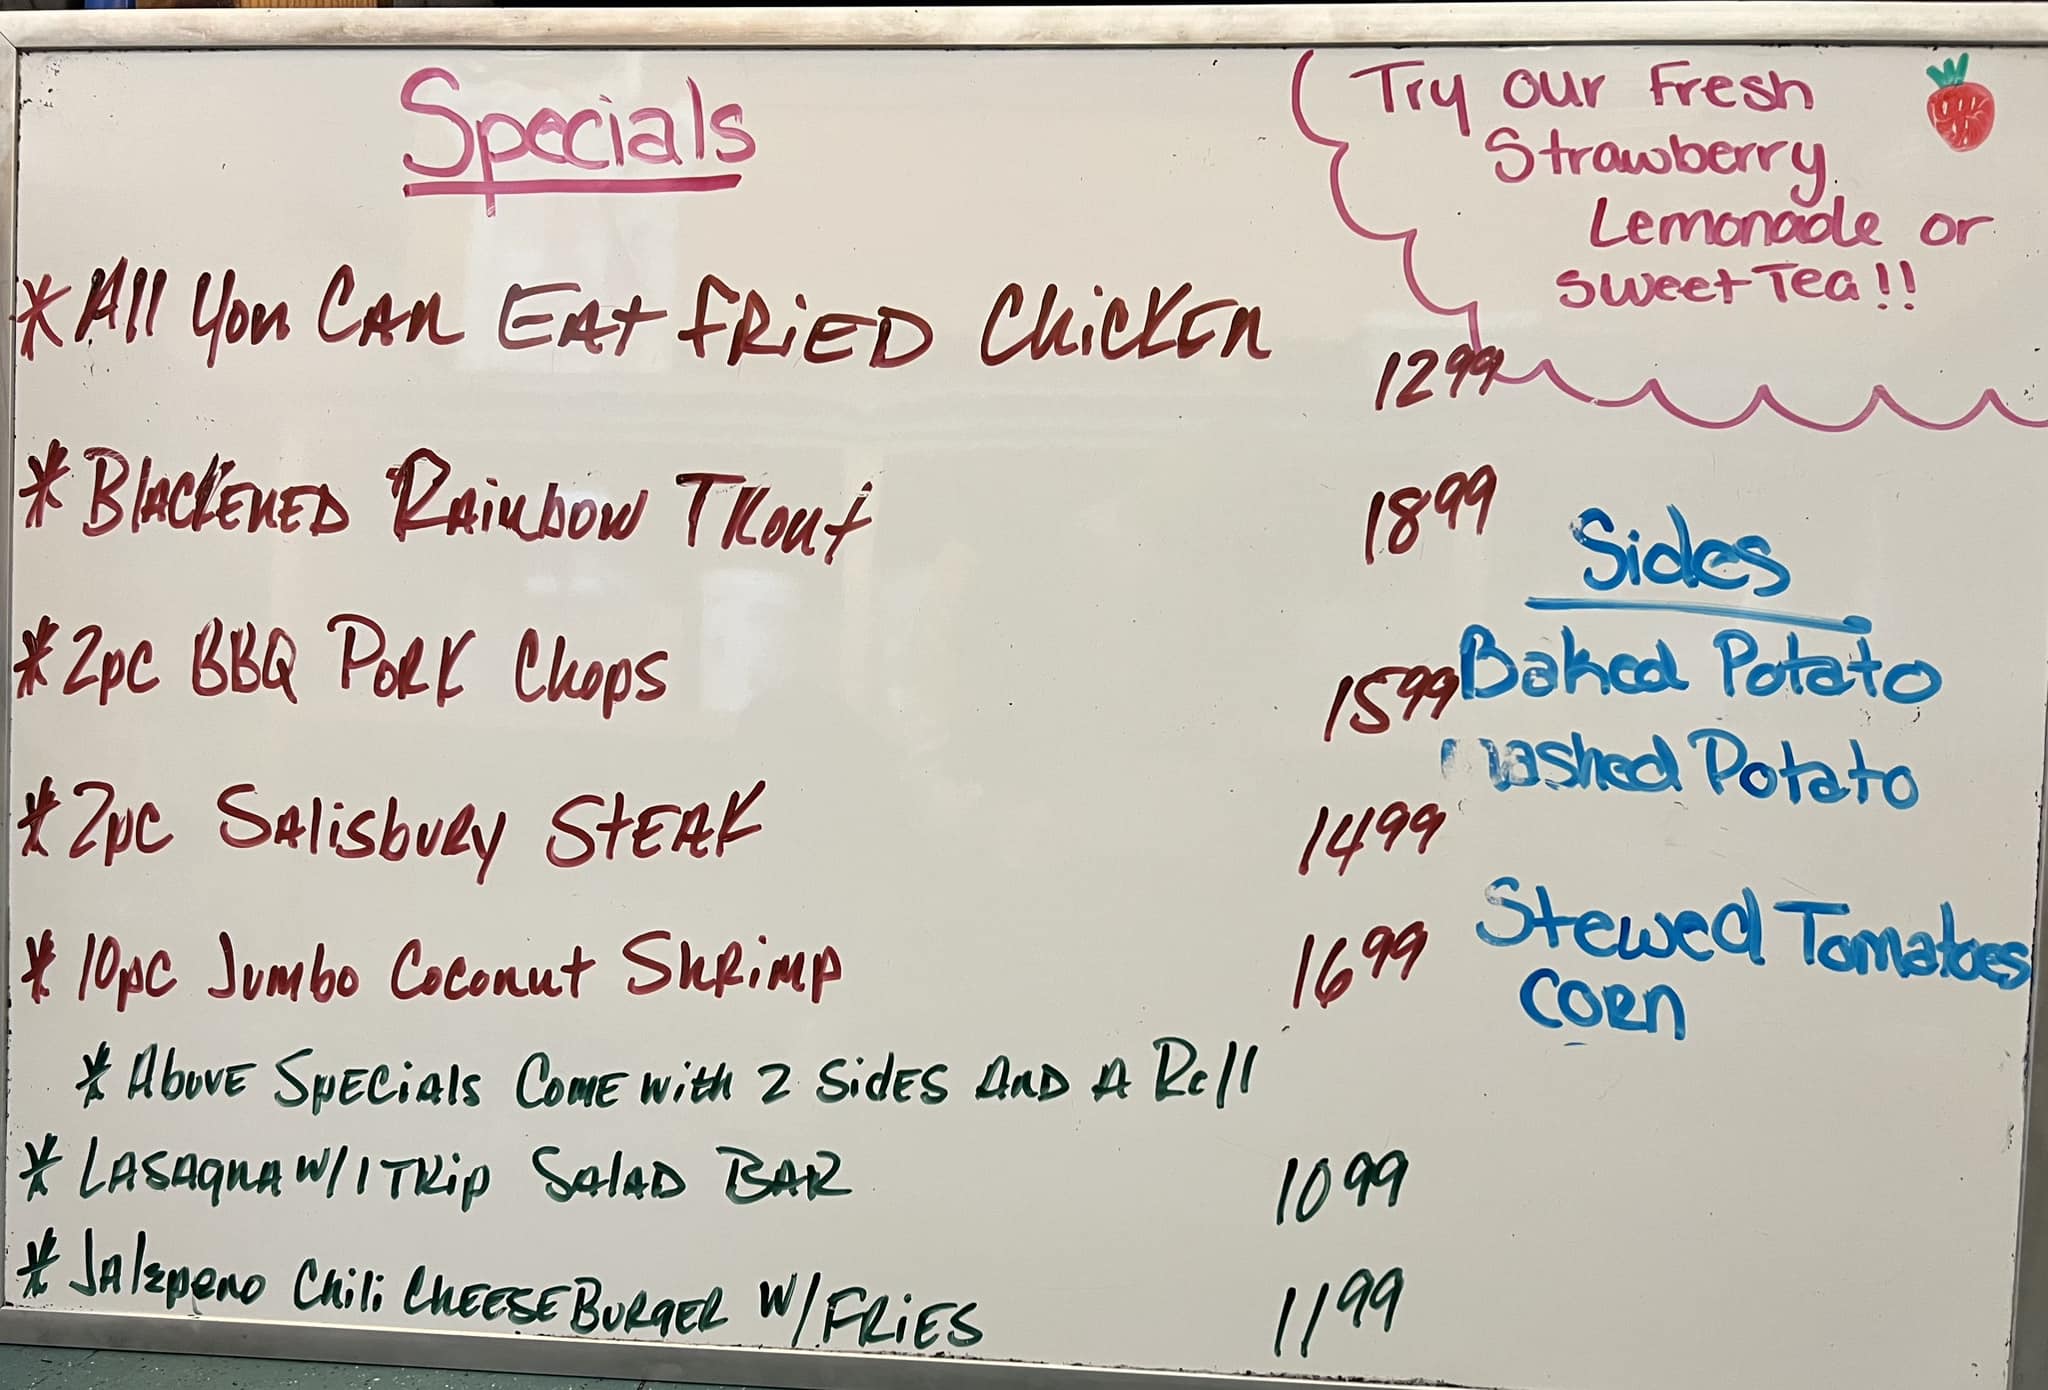 Specials
Try our Fresh
Strawberry
Lemonade or
Sweet Tea!!
* All You Can Eat Fried Chicken 12.99
* Blackened Rainbow Trout 18.99
* 2pc BBQ Pork Chops 15.99
* 2pc Salisbury Steak 14.99
* 10pc Jumbo Coconut Shrimp 16.99
* Above Specials Come with 2 Sides And A Roll
* Lasagna w/1 Trip Salad Bar 10.99
* Jalepeno Chili Cheese Burger w/Fries 11.99
Sides
Baked Potato
Mashed Potato
Stewed Tomatoes
Corn